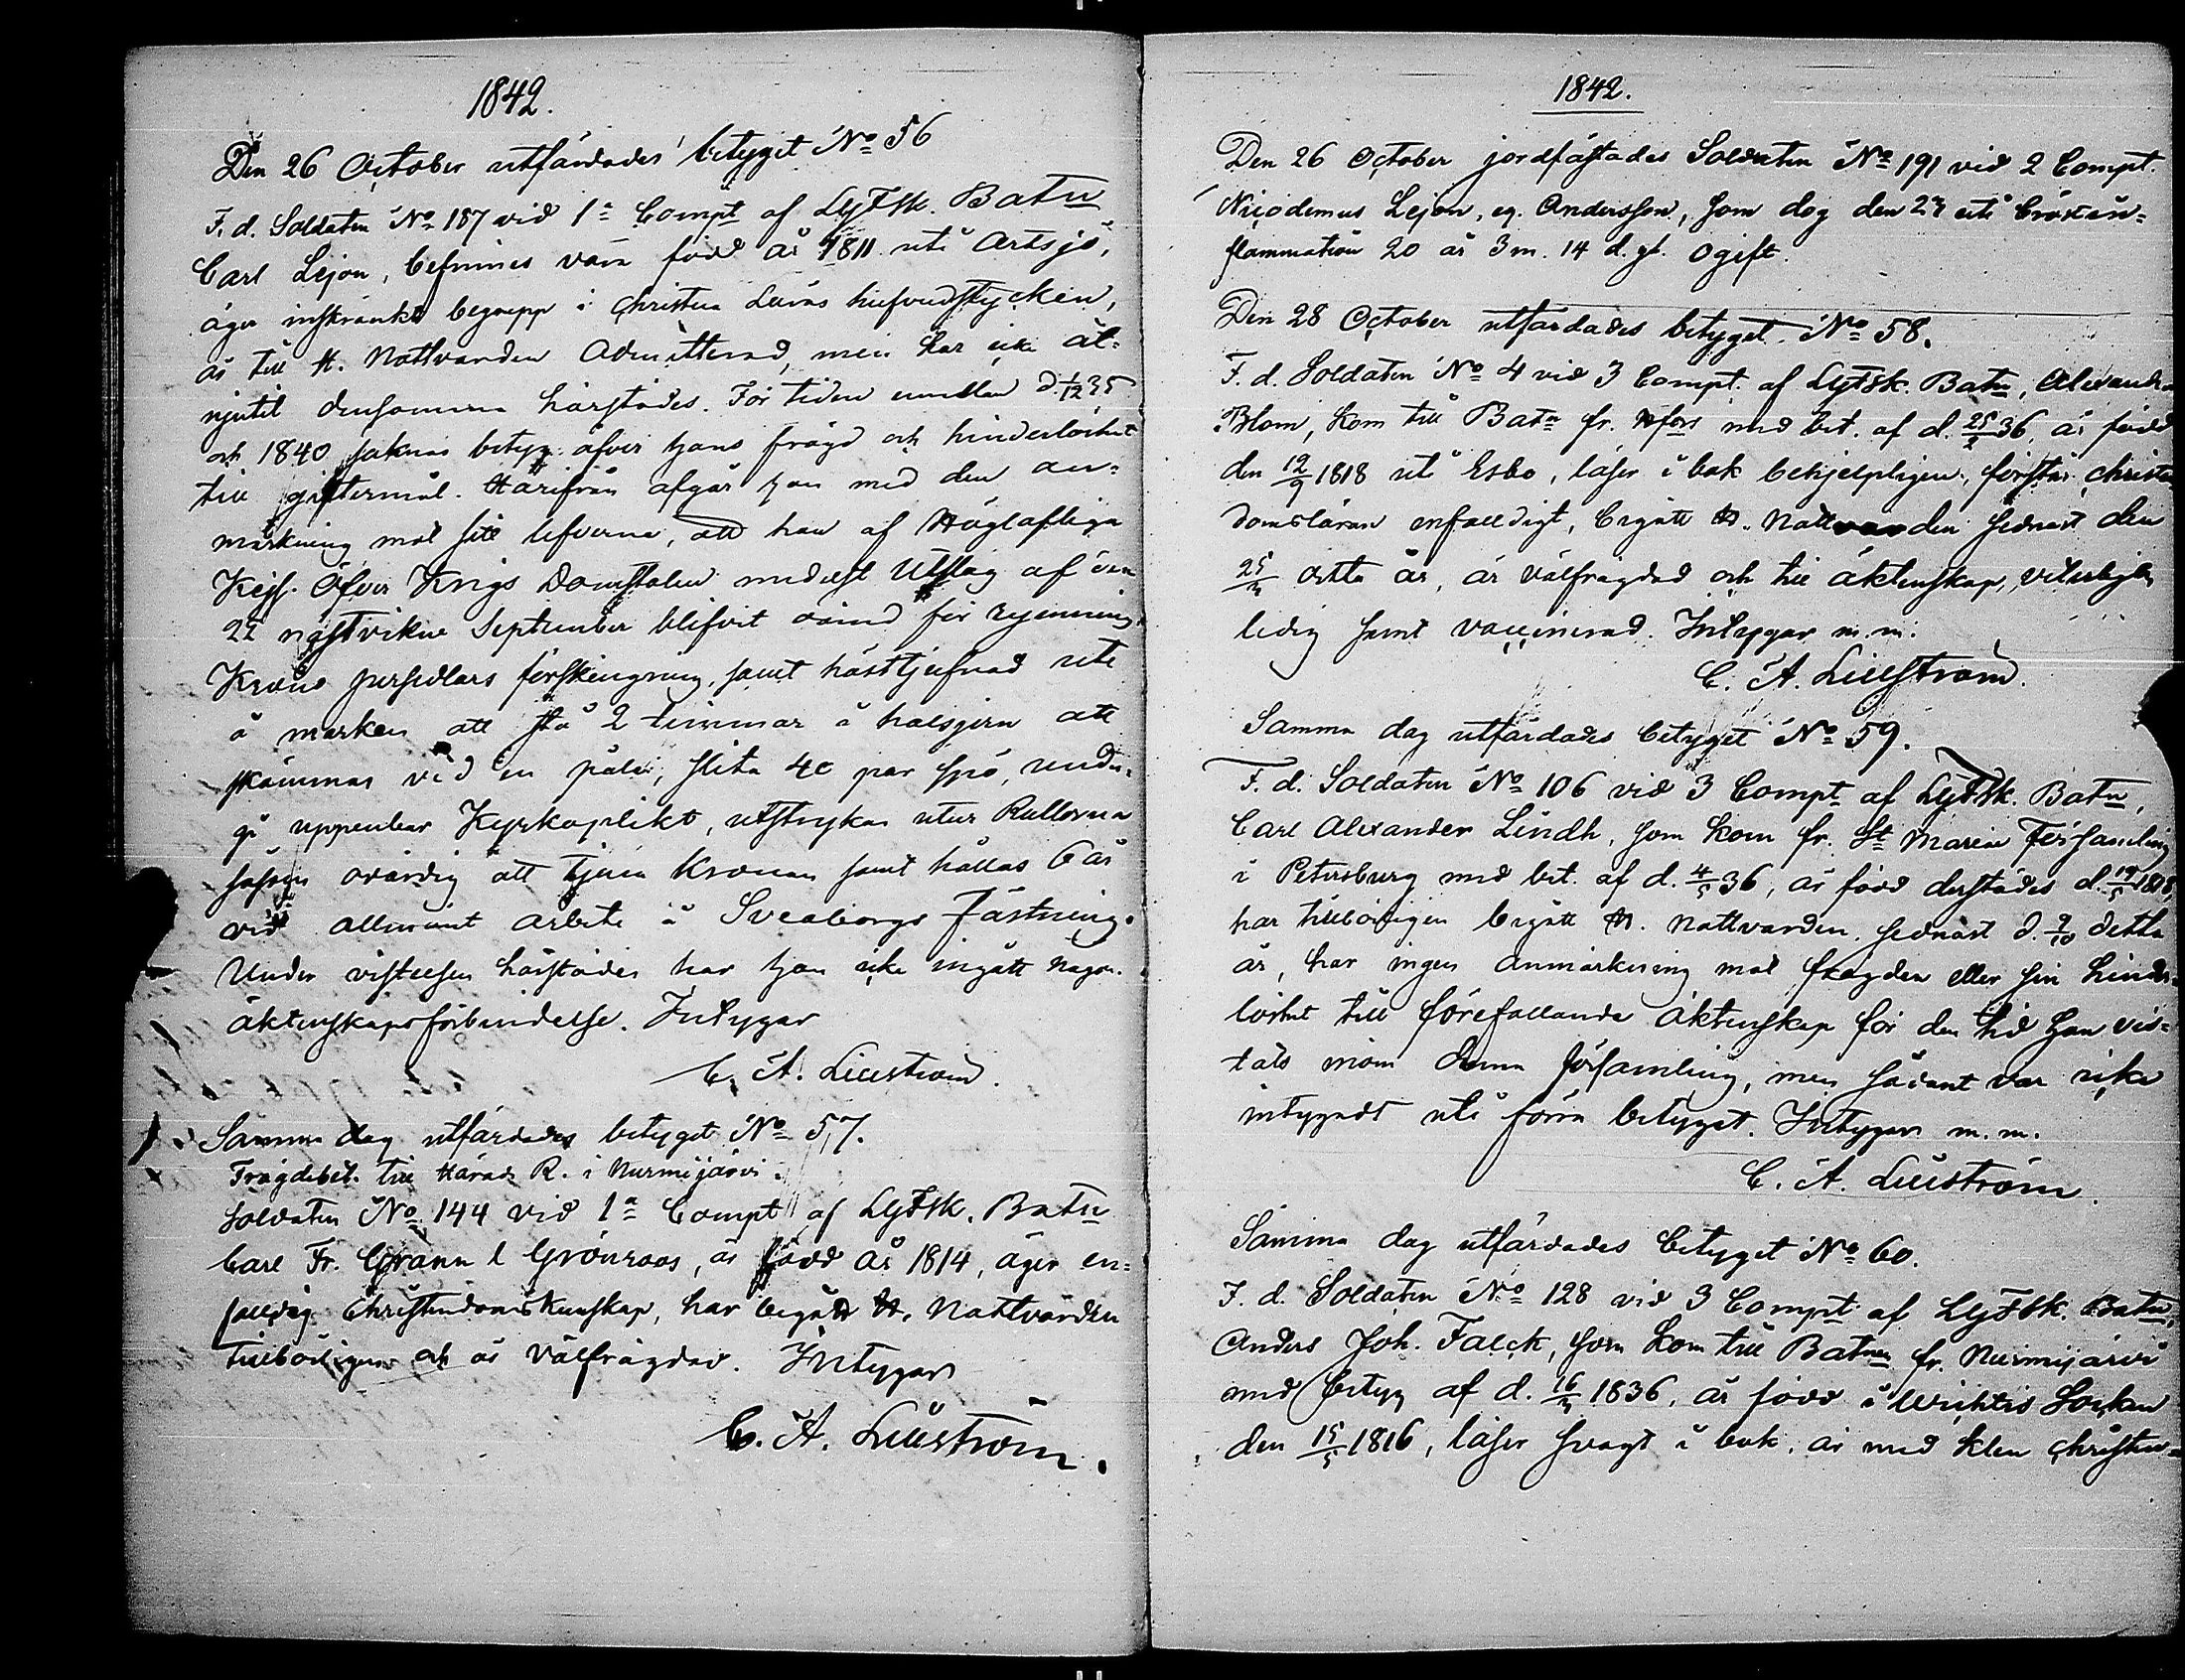 1842.
Den 26 October utfärdades betyget No 56
F. d. Soldaten No 187 vid 1a Compt af LgFSk. Batn
Carl Lejon, befinnes vara född år 1811 uti Artsjö,
äger inskränkt begrepp i Christna Lärans hufvudstycken,
är till H. Nattvarden Admitterad, men har icke åt-
njutit densamma härstädes. För tiden emellan d 1/12 35
och 1840 saknas betyg öfver hans frägd och hinderlöshet
till giftermål. Härifrån afgår han med den an-
märkning mot sitt lefverne, att han af Höglofliga
Kejs. Öfver Krigs Domstolen medelst Utslag af den
22 nästvikne September blifvit dömd för rymning,
Krono persedlars förskingring, samt hästtjufnad ute
å marken att stå 2 timmar i halsjern att
skämmas vid en påle, slita 40 par spö, under-
gå uppenbar Kyrkoplikt, utstrykas utur Rullorna
såsom ovärdig att tjena Kronan samt hållas 6 år
vid allmänt arbete å Sveaborgs Fästning.
Under vistelsen härstädes har han icke ingått någon
äktenskapsförbindelse. Intygar
C. A. Lillström.
Samma dag utfärdades betyget No 57.
Frägdebet. till Härads R. i Nurmijärvi.
Soldaten No 144 vid 1a Compt af LgFSk. Batn
Carl Fr. Grann l Grönroos, är född år 1814, äger en-
faldig Christendomskunskap, har begått H. Nattvarden
tillbörligen och är välfrägdad. Intygar
C. A. Lillström.
1842.
Den 26 October jordfästades Soldaten No 191 vid 2 Compt.
Nicodemus Lejon, eg. Andersson, som dog den 23 uti bröstin-
flammation 20 år 3 m. 14 d. gl. Ogift.
Den 28 October utfärdades betyget No 58.
F. d. Soldaten No 4 vid 3 Compt. af LgFSk. Batn, Alexander
Blom, kom till Batn fr. Hfors med bet. af d. 36, är född
den 12/9 1818 uti Esbo, läser i bok behjelpligen, förstår christen
domsläran enfaldigt, begått H. Nattvarden sednast den
detta år, är välfrägdad och till äktenskap, veterligen
ledig samt vaccinerad. Intygar m.m.
C. A. Lillström.
Samma dag utfärdades betyget No 59.
F. d. Soldaten No 106 vid 3 Compt af LgFSk. Batn,
Carl Alexander Lindh, som kom fr. St Mariæ Församling
i Petersburg med bet. af d. 4/5 36, är född derstädes d. 19/5 1818,
har tillbörligen begått H. Nattvarden, sednast d. 9/10 detta
år, har ingen anmärkning mot frägden eller sin hinder-
löshet till förefallande äktenskap för den tid han vis-
tats inom denna församling, men sådant var icke
intygadt uti förra betyget. Intygar m.m.
C. A. Lillström.
Samma dag utfärdades betyget No 60.
F. d. Soldaten No 128 vid 3 Compt af LgFSk. Batn,
Anders Joh. Falck, som kom till Batnen fr. Nurmijärvi
med betyg af d. 1836, är född i Wichtis Socken
den 15/5 1816, läser svagt i bok, är med klen christen-